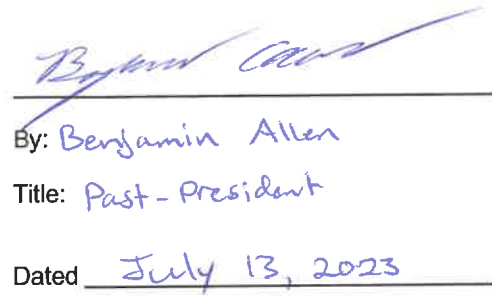 By: Benjamin Allen
Title: Past-President
Dated July 13, 2023